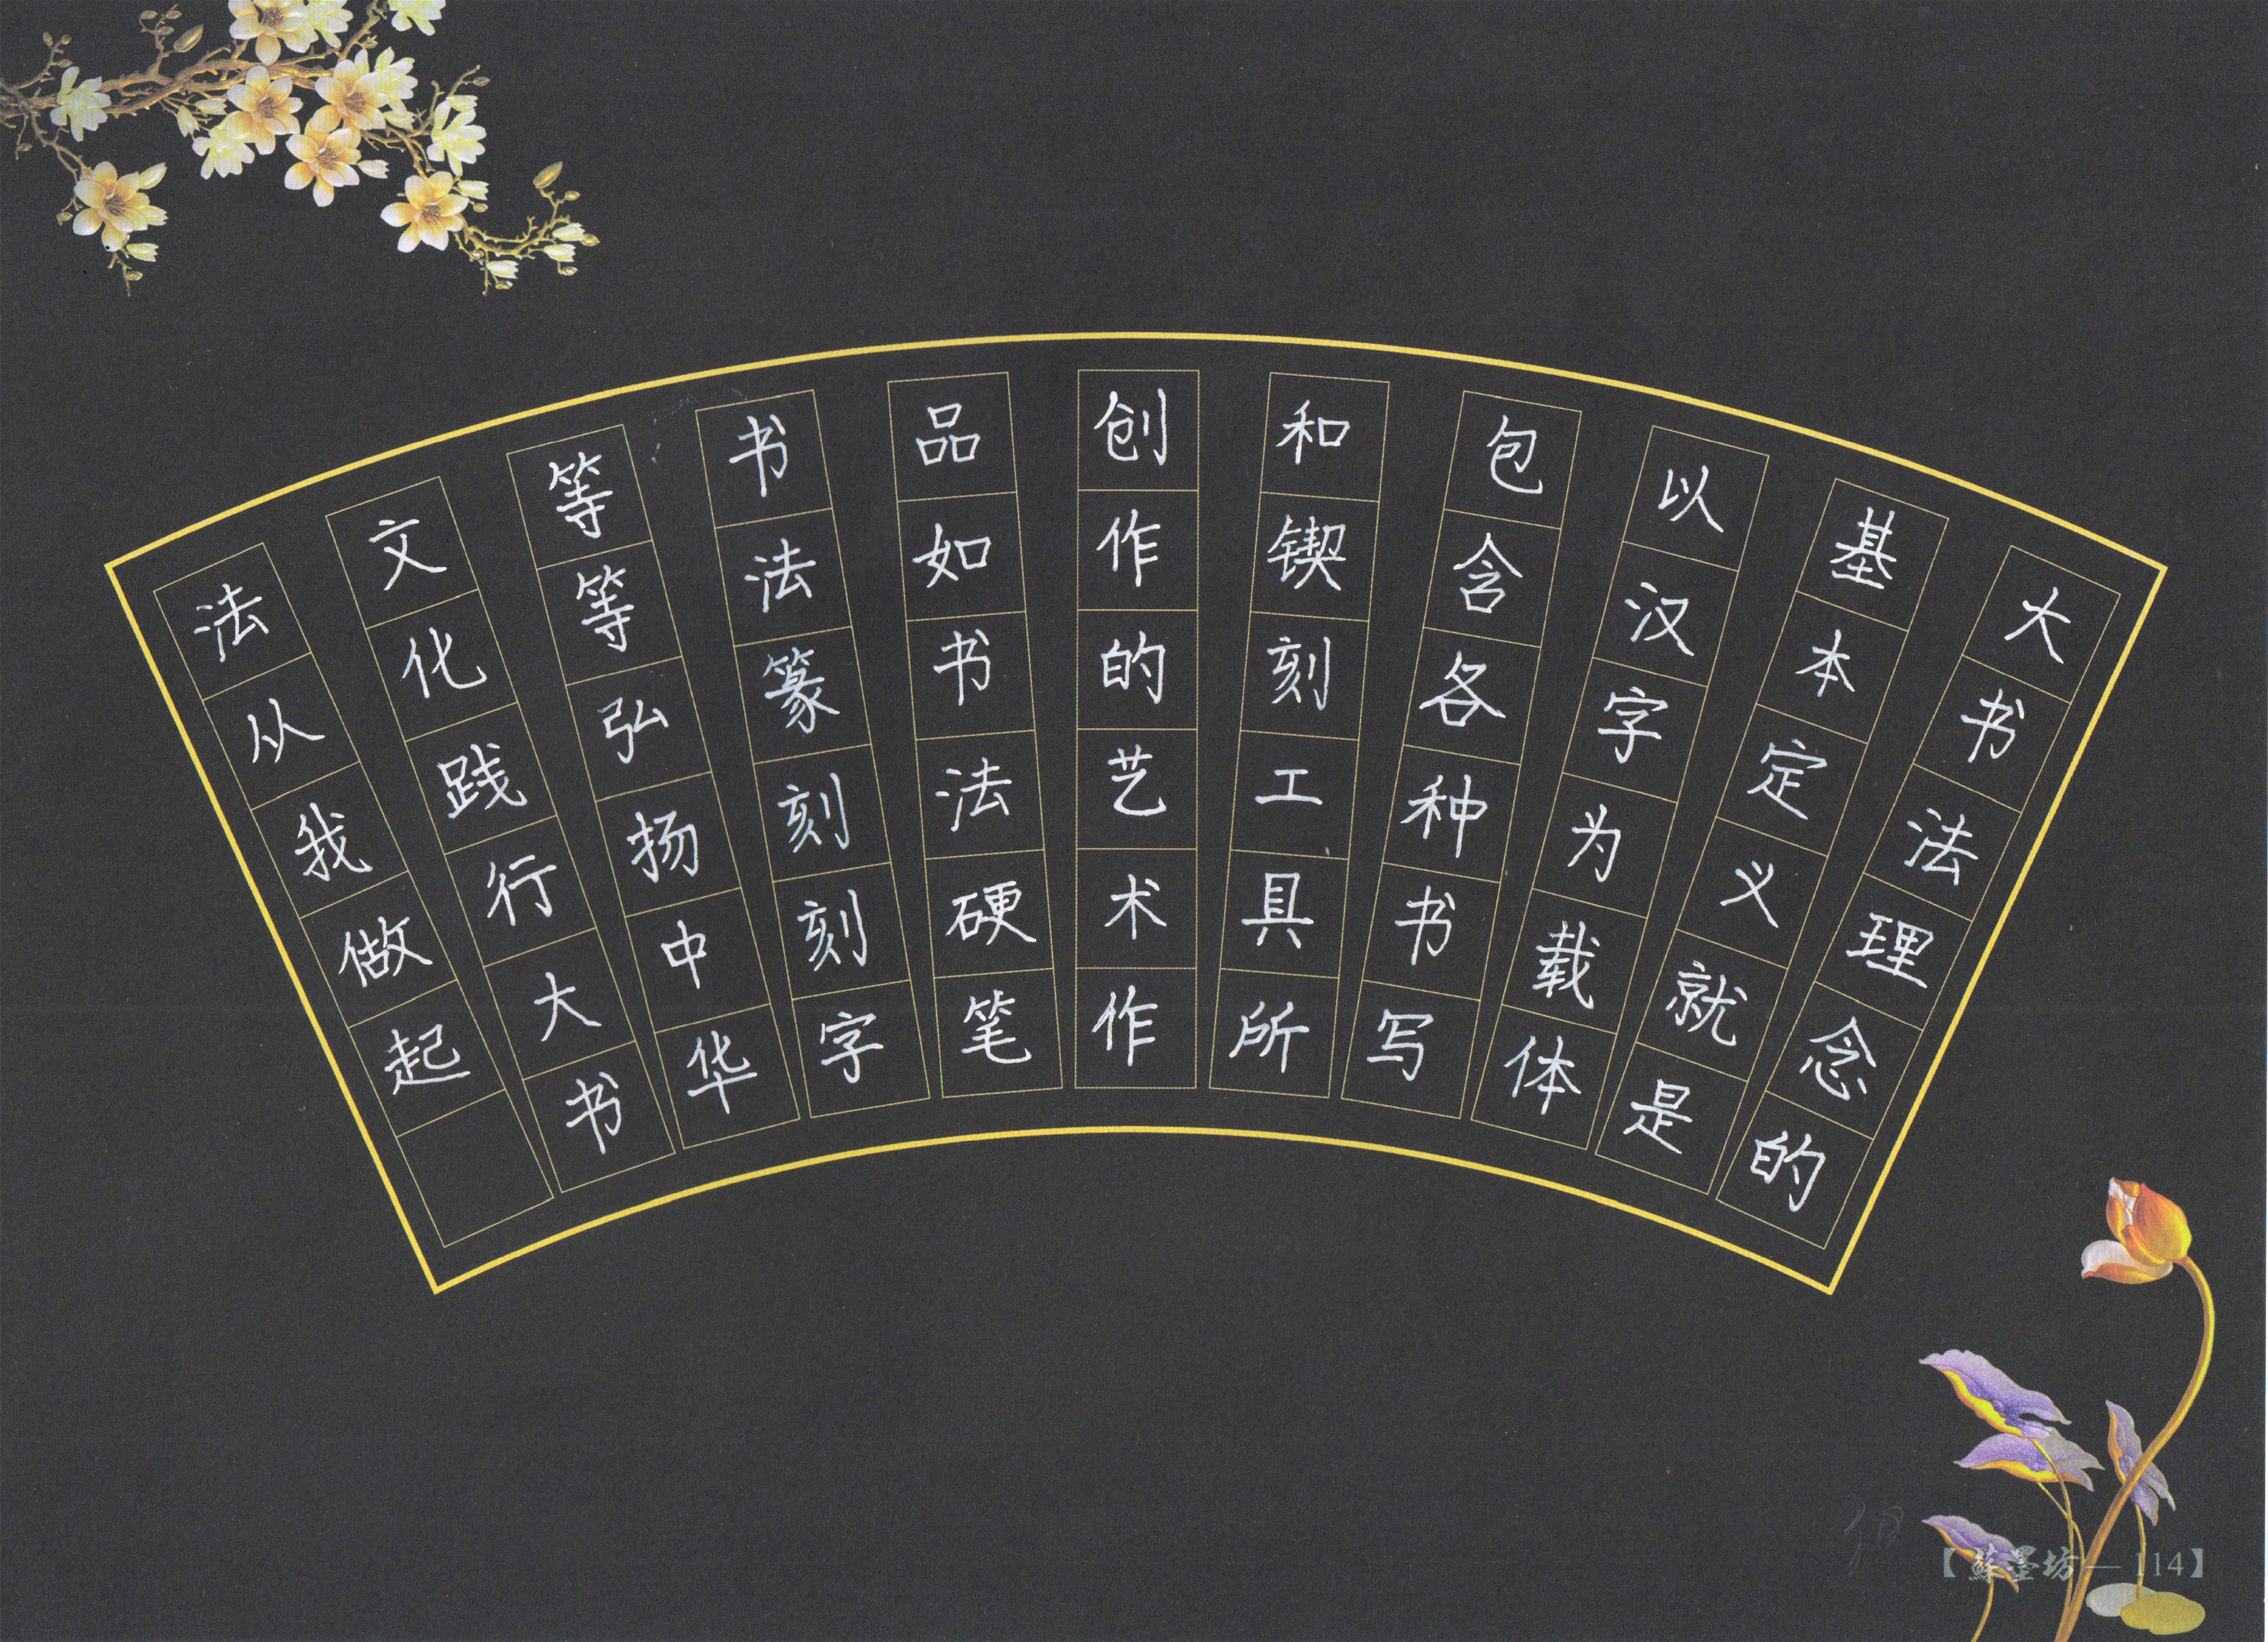 大书法理念的
基本定义就是
以汉字为载体
包含各种书写
和锲刻工具所
创作的艺术作
品如书法硬笔
书法篆刻刻字
等等弘扬中华
文化践行大书
法从我做起
【蘇墨坊—114】